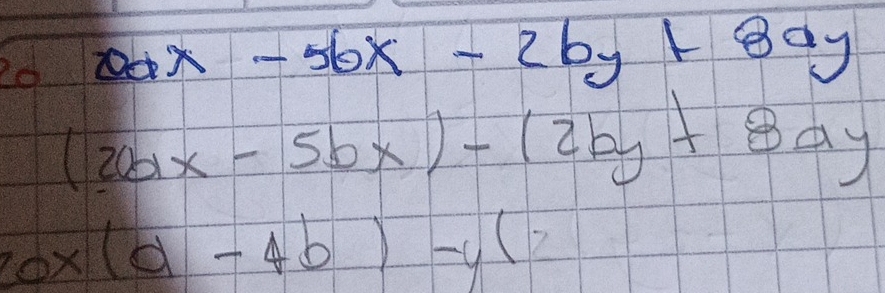 20ax - 5bx - 2by + 8ay
(20ax - 5bx) - (2by + 8ay
20x(a - 4b) - y(2